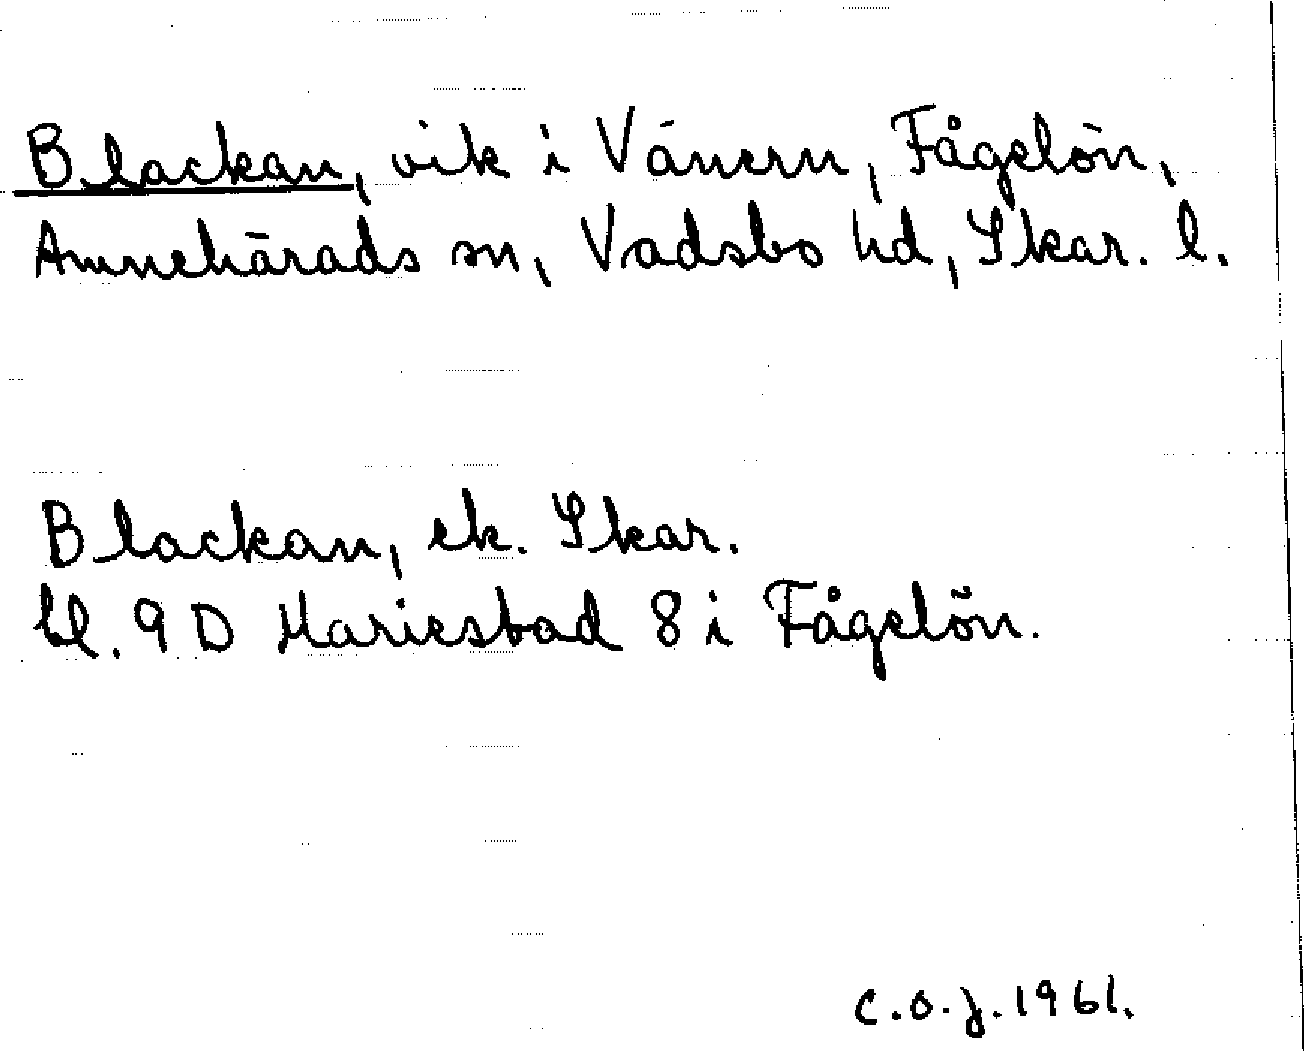 Blackan, vik i Vänern, Fågelön,
Amnehärads sn, Vadsbo hd, Skar. l.
Blackan, ek. Skar.
bl. 9 D Mariesbad 8 i Fågelön.
C.O.J. 1961.